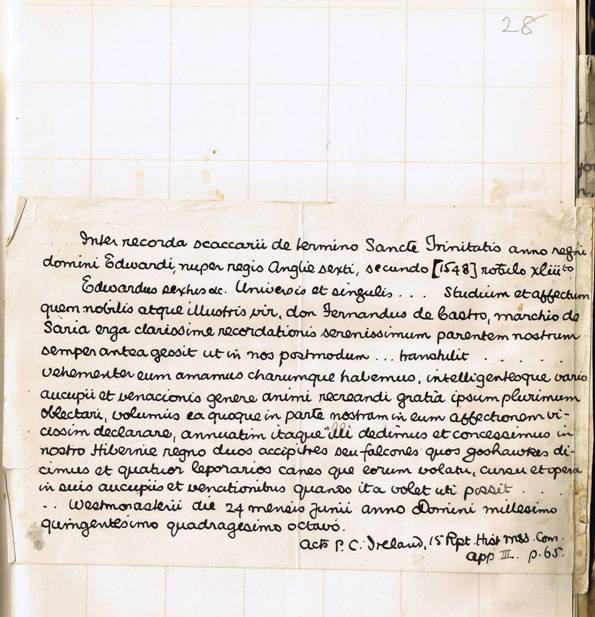 28
Inter recorda scaccarii de termino Sancte Trinitatis anno regni
domini Edwardi, nuper regis Anglie sexti, secundo [1548] rotulo xliiito
Edwardus sextus &c. Universis et singulis . . . Studium et affectum
quem nobilis atque illustris vir, don Fernandus de Castro, marchio de
Saria erga clarissime recordationis serenissimum parentem nostrum
semper antea gessit ut in nos postmodum . . . transtulit . . . . .
vehementer eum amamus charumque habemus, intelligentesque vario
aucupii et venacionis genere animi recreandi gratia ipsum plurimum
oblectari, volumus ea quoque in parte nostram in eum affectionem vi-
cissim declarare, annuatim itaque illi dedimus et concessimus in
nostro Hibernie regno duos accipitres seu falcones quos goshawkes di-
cimus et quatuor leporarios canes que eorum volatu, cursu et opera
in suis aucupiis et venationibus quando ita volet uti possit . . . .
. . Westmonasterii die 24 mensis Junii anno Domini millesimo
quingentesimo quadragesimo octavo.
Acts P. C. Ireland, 15 Rpt. Hist Mss. Com.
app III. p. 65.